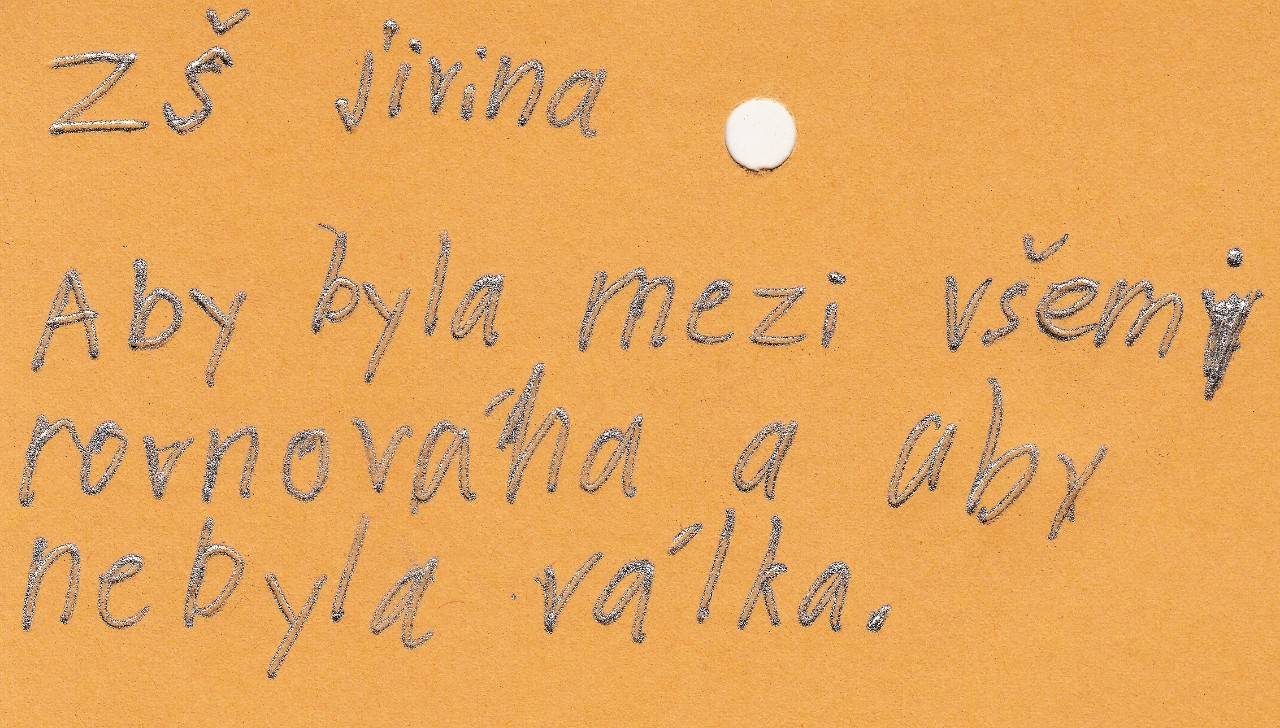 ZŠ jivina
Aby byla mezi všemi
rovnováha a aby
nebyla válka.